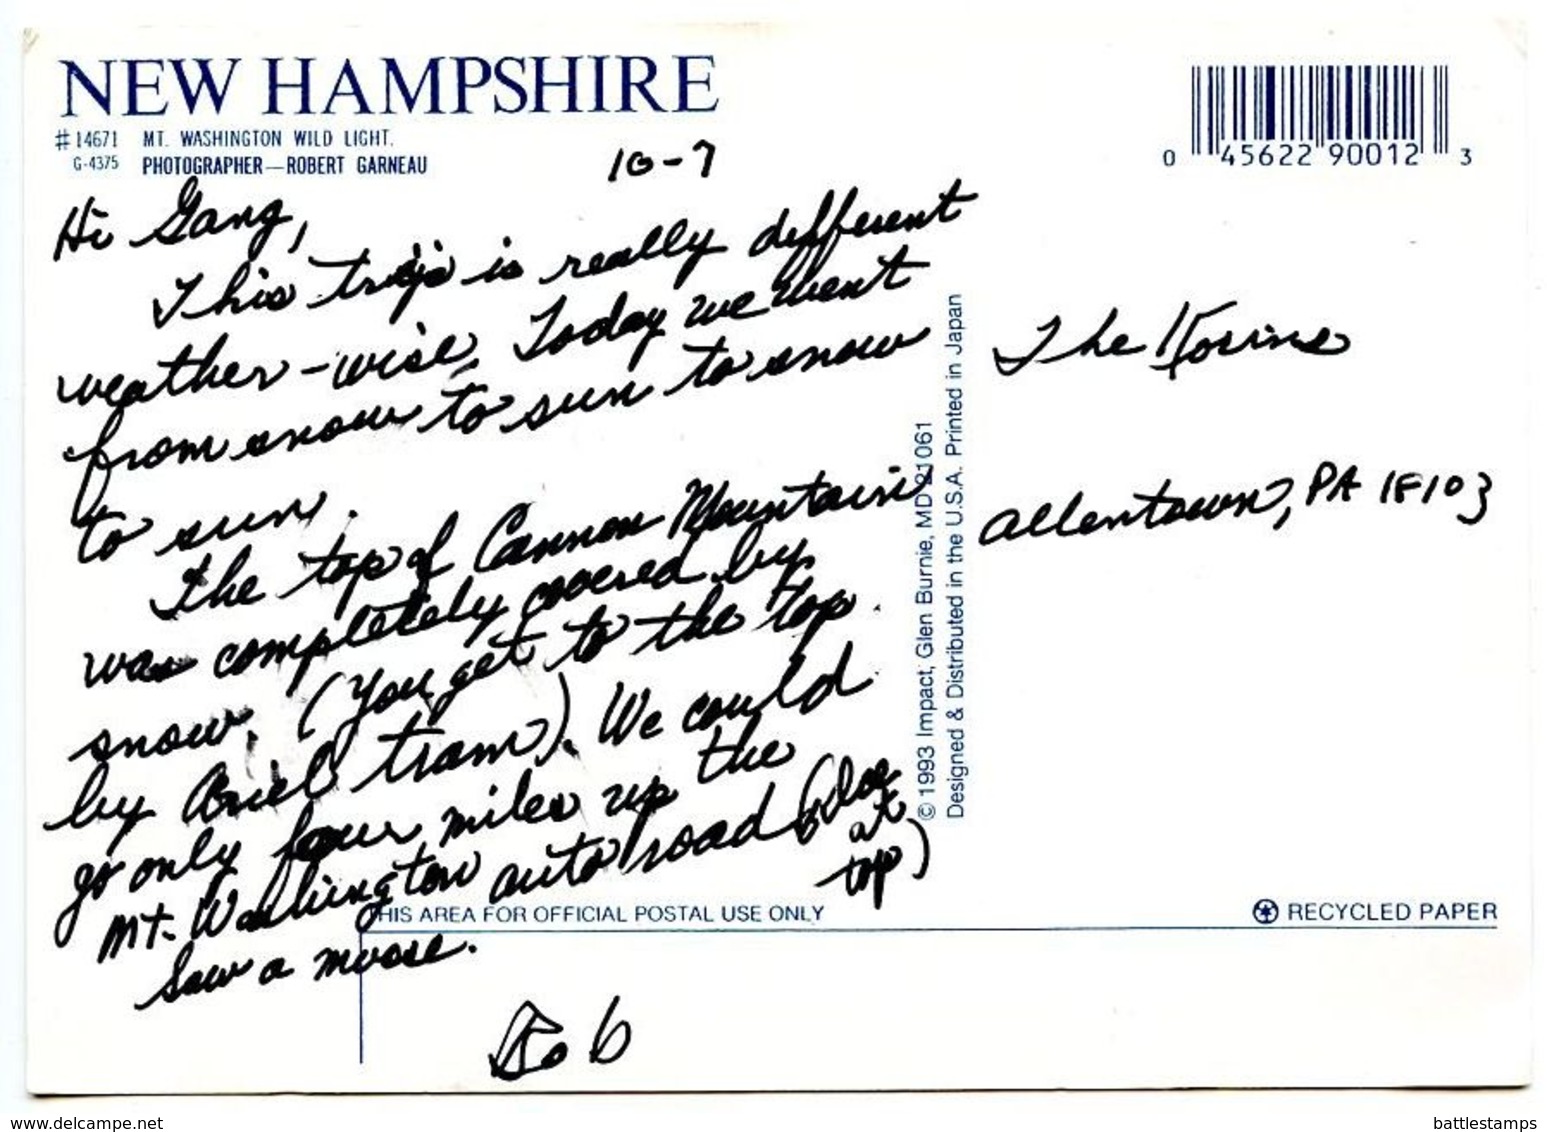 NEW HAMPSHIRE
#14671 MT. WASHINGTON WILD LIGHT.
G-4375 PHOTOGRAPHER—ROBERT GARNEAU
0 45622 90012 3
10-7
Hi Gang,
This trip is really different
weather-wise. Today we went
from snow to sun to snow
to sun.
The top of Cannon Mountain
was completely covered by
snow. (You get to the top
by Ariel tram). We could
go only four miles up the
Mt. Washington auto road (Ice
at
top)
Saw a moose.
Bob
© 1993 Impact, Glen Burnie, MD 21061
Designed & Distributed in the U.S.A. Printed in Japan
The
Allentown, PA 18103
THIS AREA FOR OFFICIAL POSTAL USE ONLY
RECYCLED PAPER
www.delcampe.net
battlestamps